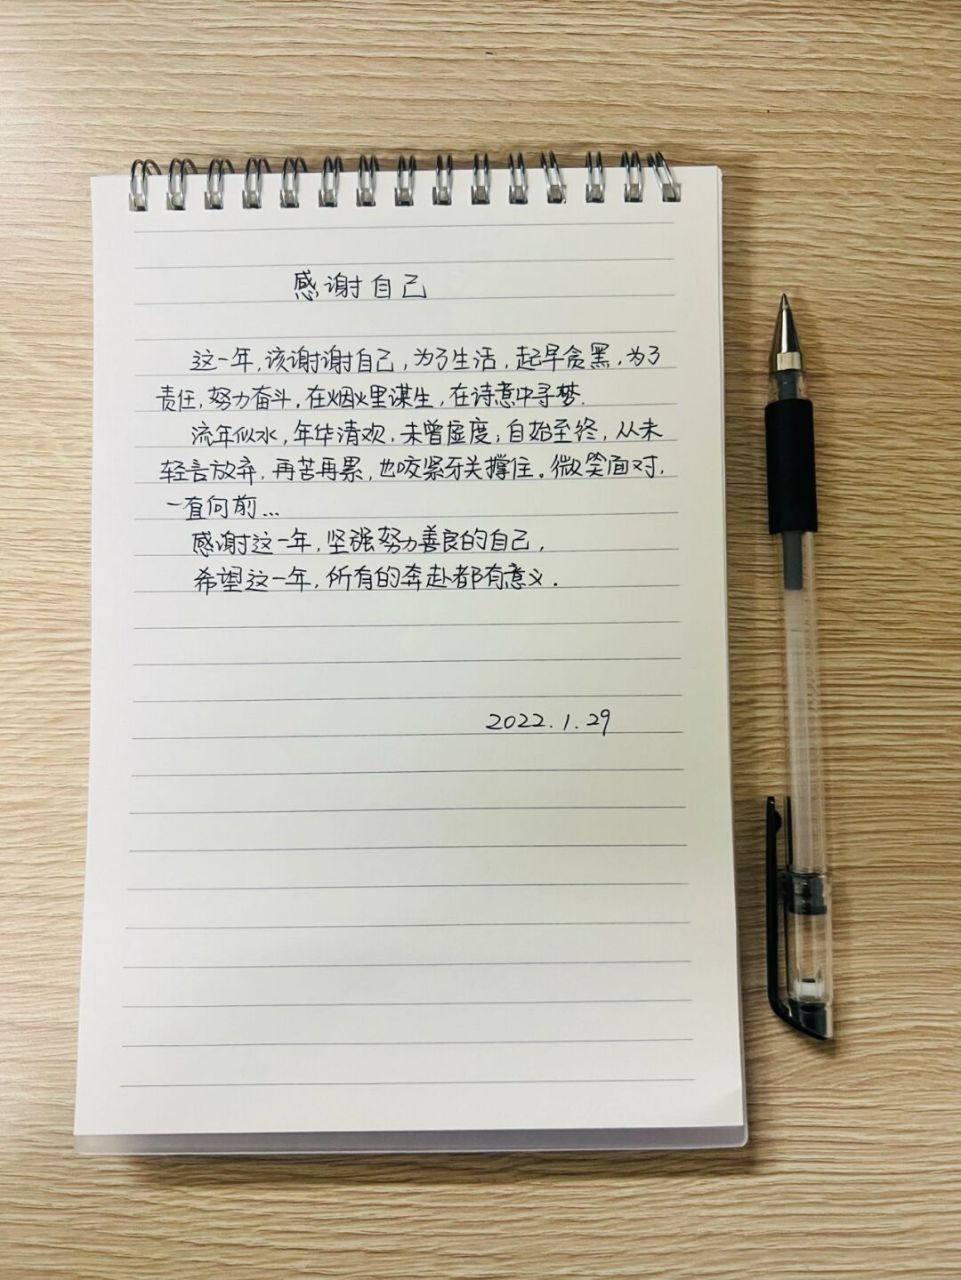 感谢自己
这一年,该谢谢自己,为了生活,起早贪黑,为了
责任,努力奋斗.在烟火里谋生,在诗意中寻梦.
流年似水,年华清欢,未曾虚度;自始至终,从未
轻言放弃,再苦再累,也咬紧牙关撑住。微笑面对,
一直向前...
感谢这一年,坚强努力善良的自己,
希望这一年,所有的奔赴都有意义.
2022.1.29